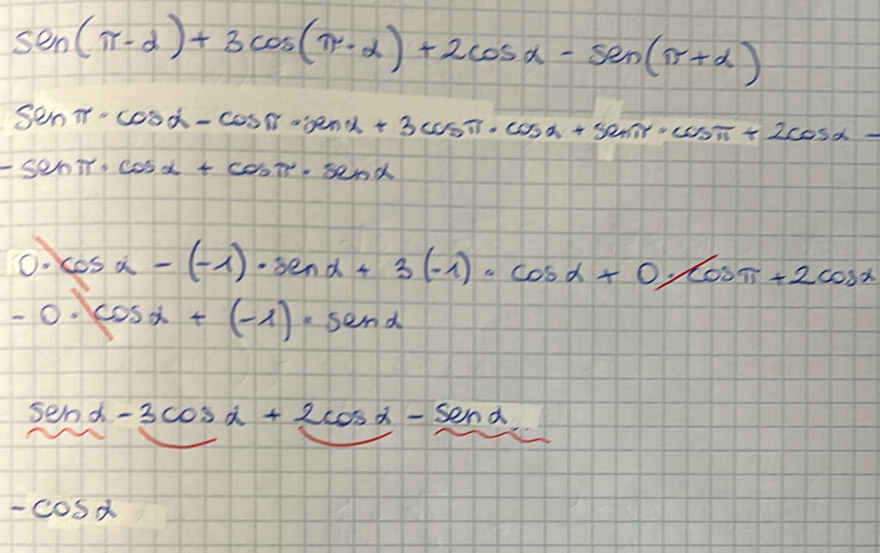 sen(π-α) + 3cos(π-α) + 2cosα - sen(π+α)
senπ·cosα - cosπ·senα + 3cosπ·cosα + senπ·cosπ + 2cosα -
- senπ·cosα + cosπ·senα
0·cosα - (-1)·senα + 3(-1)·cosα + 0·cosπ + 2cosα
- 0·cosα + (-1)·senα
senα - 3cosα + 2cosα - senα
-cosα